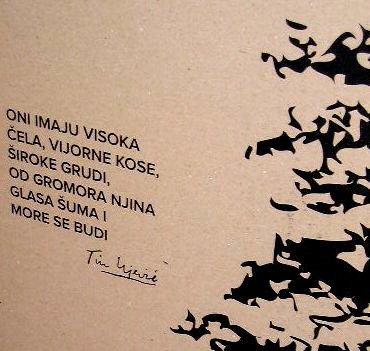 ONI IMAJU VISOKA
ČELA, VIJORNE KOSE,
ŠIROKE GRUDI,
OD GROMORA NJINA
GLASA ŠUMA I
MORE SE BUDI
Tin Ujević